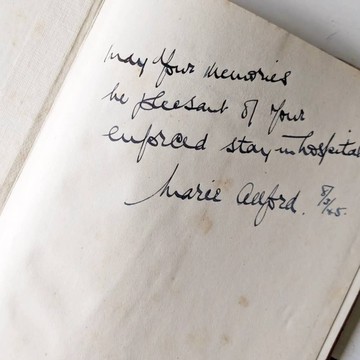 May Your Memories
be pleasant of Your
enforced stay in hospital
Marie Adford. 8/3/25.